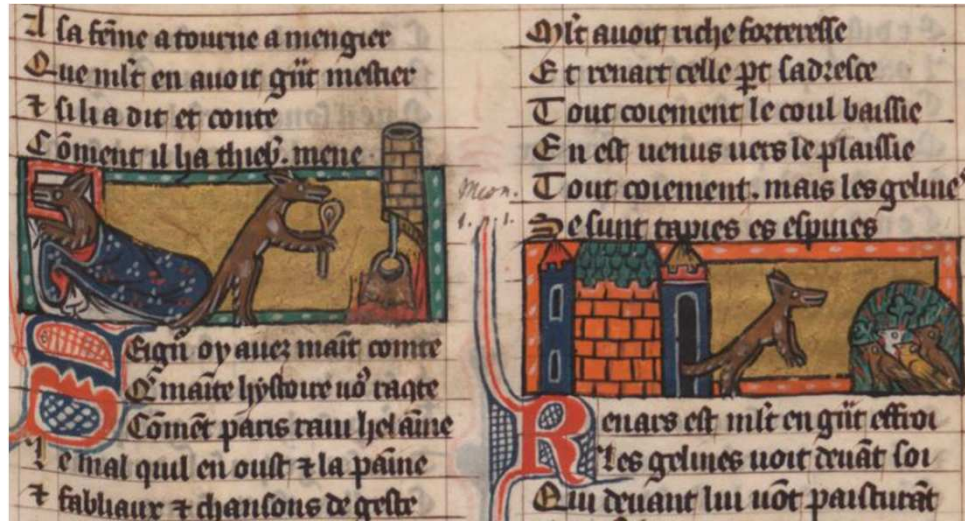 A sa fēme atourne a mengier
Que mlt en auoit gñt mestier
⁊ si li a dit et conte
Cōment il ha thieb'. mene
Seignᷣ oy auez maīt comte
Q' maīte hystoire uo' raqte
Cōmēt paris raui helaīne
Le mal quil en oust ⁊ la paīne
⁊ fabliaux ⁊ chansons de geste
Meon.
Mlt auoit riche forteresse
Et renart celle pt sadresce
Tout coiement le coul baissie
En est uenus uers le plaissie
Tout coiement. mais les geline
Se sunt tapies es espines
Renars est mlt en gñt effroi
Les gelines uoit deuāt soi
Qui deuant lui uōt pasturāt